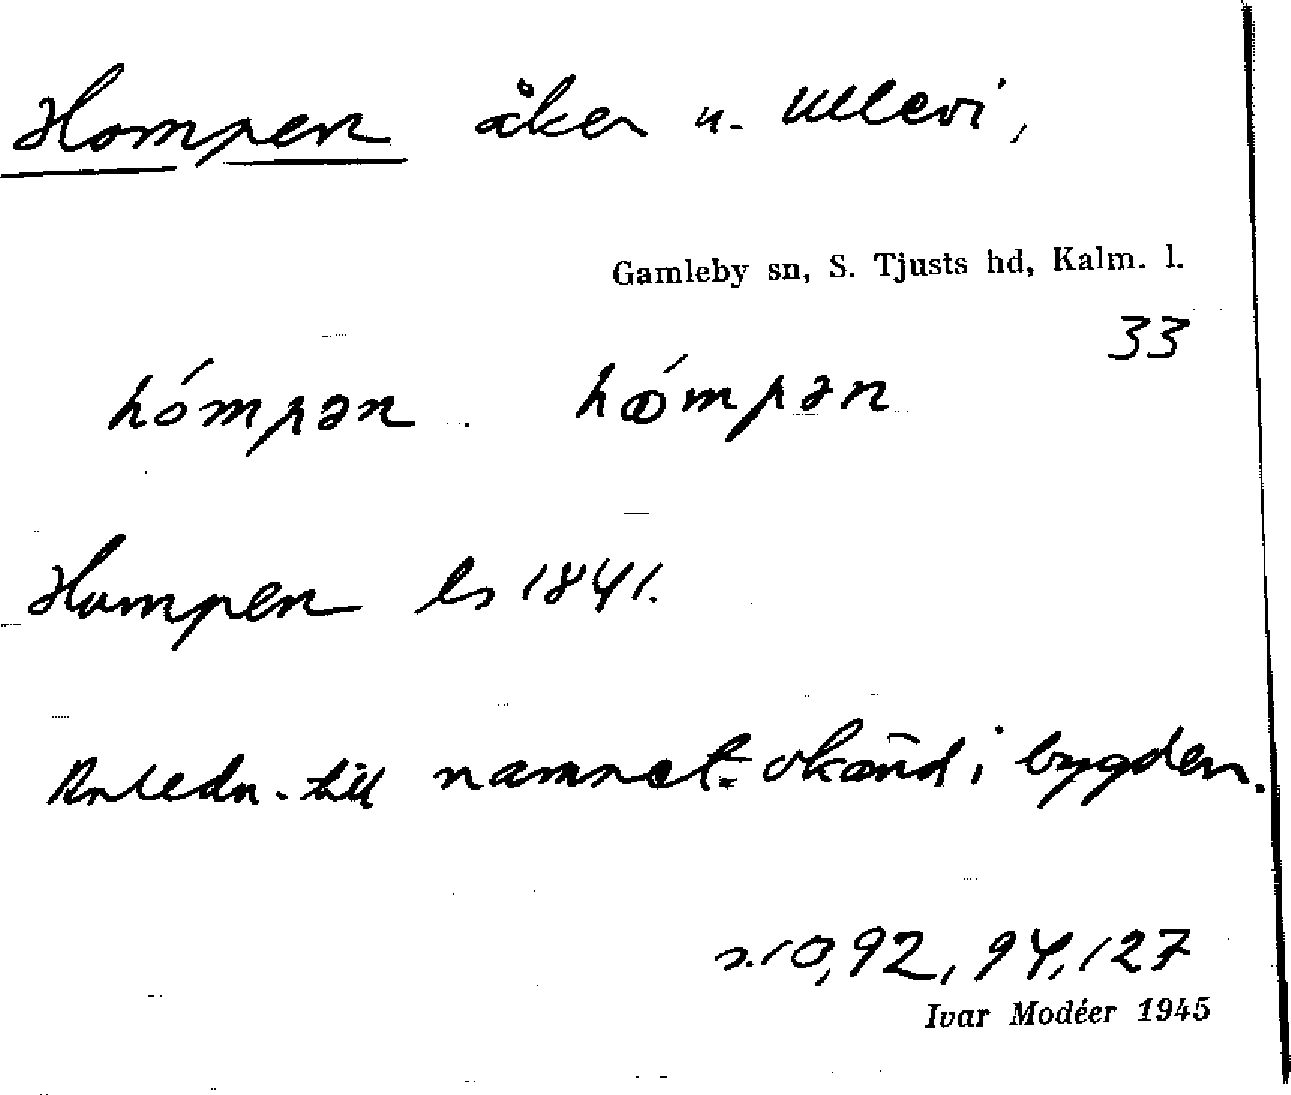 Hompen åker u. Ullevi,
Gamleby sn, S. Tjusts hd, Kalm. l.
33
hómpən. hǿmpən
Humpen ls 1841.
Anledn. till namnet okänd i bygden.
s. 10, 92, 94, 127
Ivar Modéer 1945